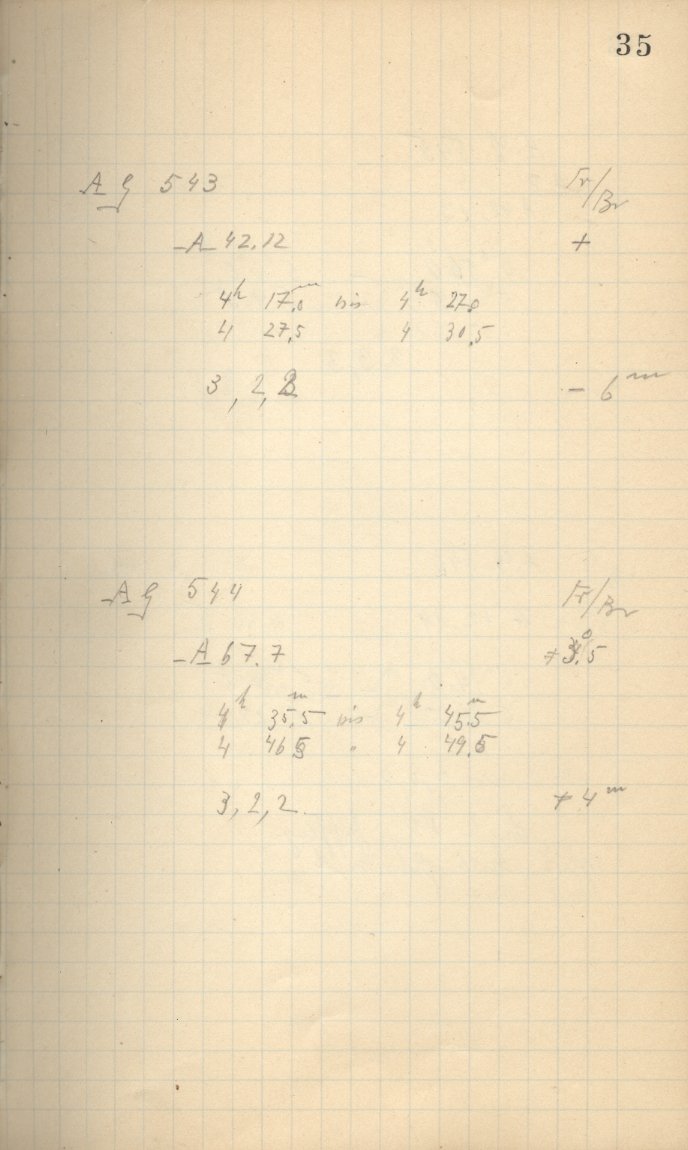 35
AG 543 Fr/Br
A 42.12 +
4h 17,0m bis 4h 27,0
4 27,5 4 30,5
3, 2, 2 - 6m
AG 544 Fr/Br
A 67.7 +3°.5
4h 35,5m bis 4h 45,5m
4 46,5 " 4 49,5
3, 2, 2. + 4m